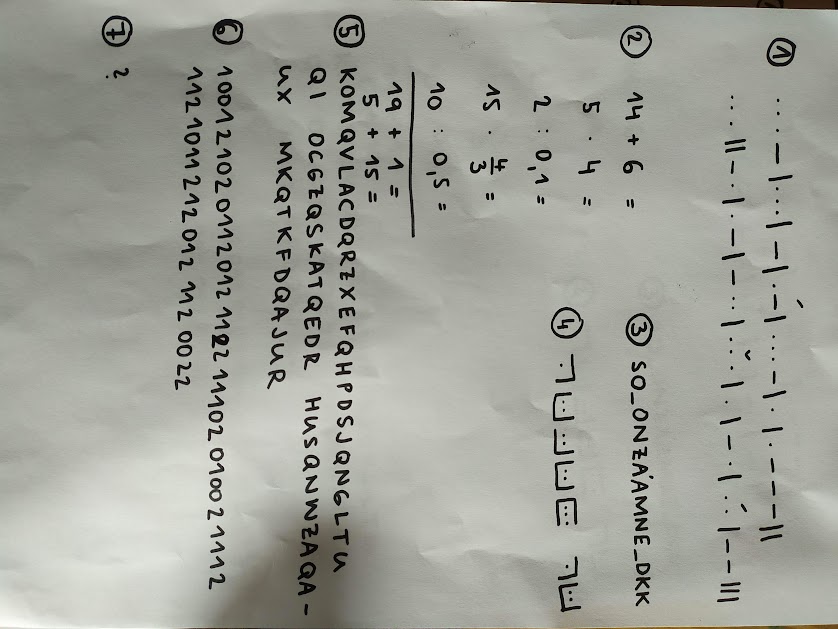 ① ...–|...|–|.–́|...–|.|.–––||
...||–.|.–|–..|....|.|–.|..|––|||
② 14 + 6 =
5 · 4 =
2 : 0,1 =
15 · 4/3 =
10 : 0,5 =
19 + 1 =
5 + 15 =
③ SO_ONZÁAMNE_DKK
④
⑤ KOMQVLACDQRZXEFQHPDSJQNGLTU
QI OCGZQSKATQEDR HUSQNWZAQA-
UX MKQTKFDQAJUR
⑥ 100121020112012112211102010021112
1121011212012 1120022
⑦ ?